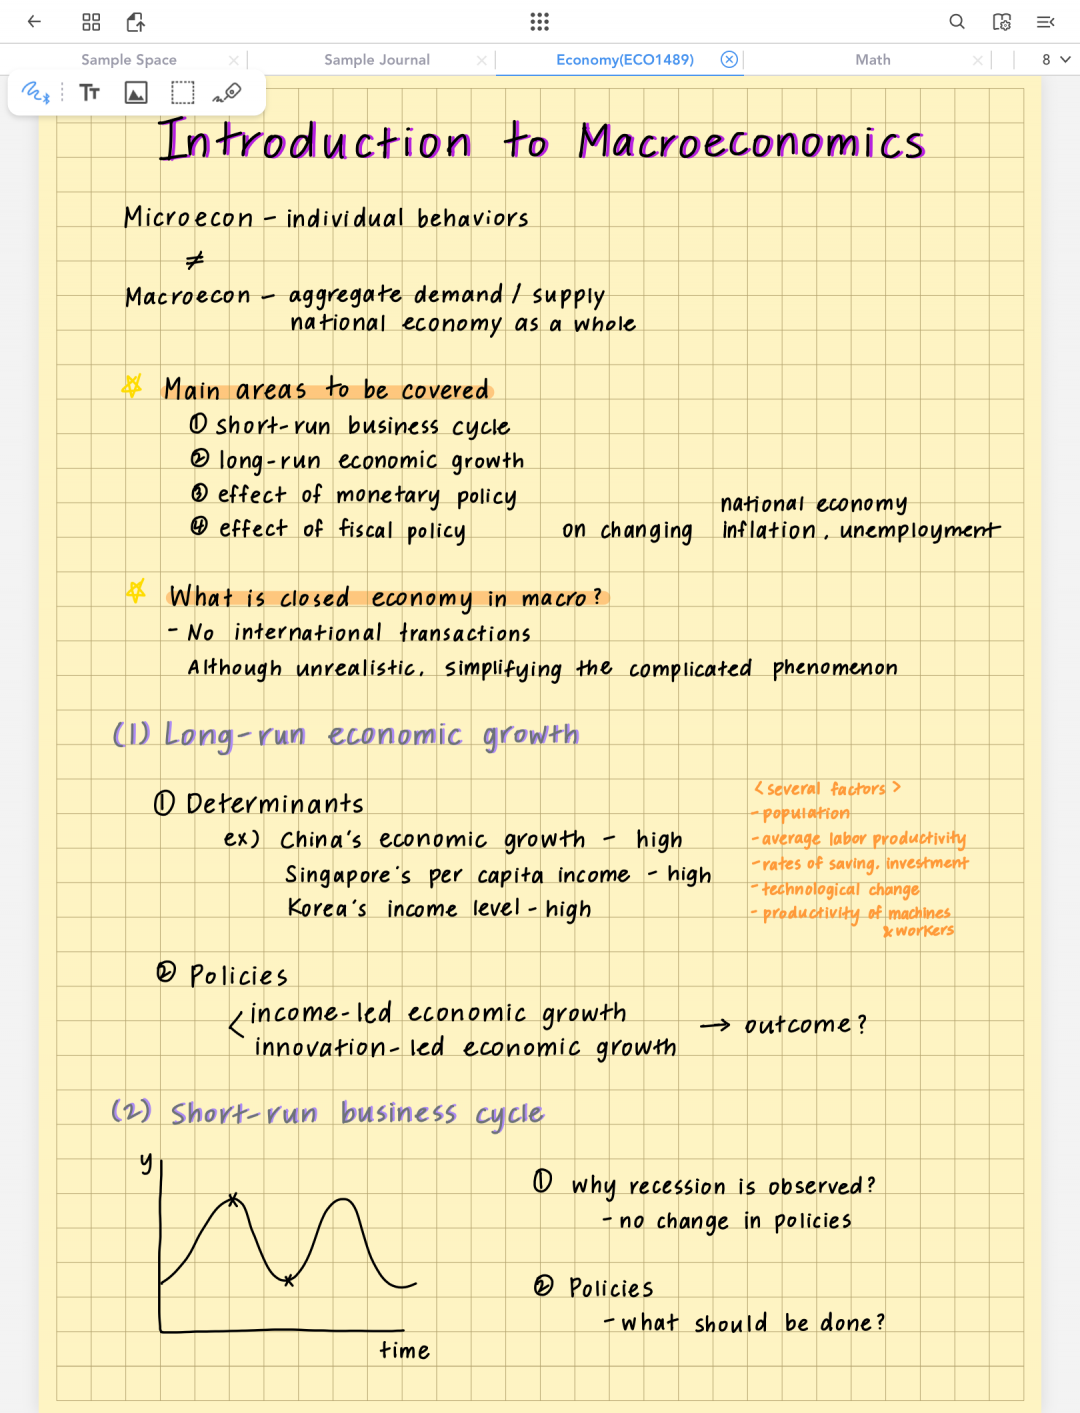 Sample Space
Sample Journal
Economy(ECO1489)
Math
8
Tт
Introduction to Macroeconomics
Microecon - individual behaviors
≠
Macroecon - aggregate demand / supply
national economy as a whole
Main areas to be covered
① short-run business cycle
② long-run economic growth
③ effect of monetary policy
④ effect of fiscal policy on changing national economy
inflation, unemployment
What is closed economy in macro?
- No international transactions
Although unrealistic, simplifying the complicated phenomenon
(1) Long-run economic growth
① Determinants
ex) China's economic growth - high
Singapore's per capita income - high
Korea's income level - high
<several factors>
- population
- average labor productivity
- rates of saving, investment
- technological change
- productivity of machines
& workers
② Policies
< income-led economic growth
innovation-led economic growth
→ outcome?
(2) Short-run business cycle
y
time
① why recession is observed?
- no change in policies
② Policies
- what should be done?